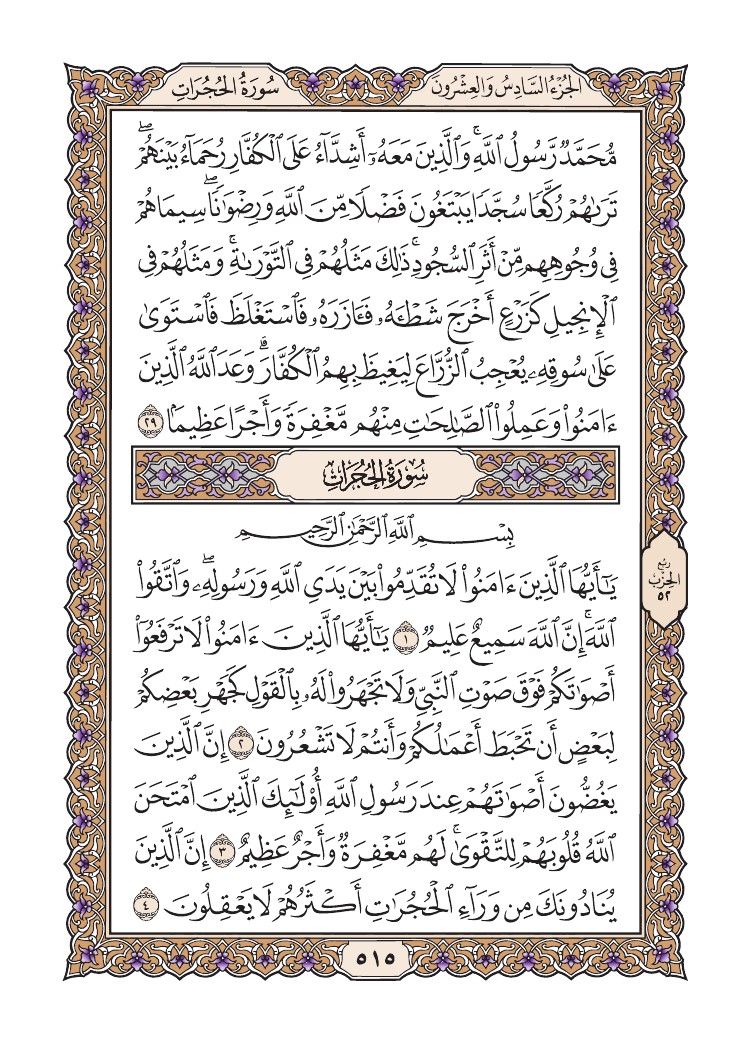 الجزء السادس والعشرون
سورة الحجرات
مُّحَمَّدٌ رَّسُولُ ٱللَّهِۚ وَٱلَّذِينَ مَعَهُۥٓ أَشِدَّآءُ عَلَى ٱلۡكُفَّارِ رُحَمَآءُ بَيۡنَهُمۡۖ
تَرَىٰهُمۡ رُكَّعٗا سُجَّدٗا يَبۡتَغُونَ فَضۡلٗا مِّنَ ٱللَّهِ وَرِضۡوَٰنٗاۖ سِيمَاهُمۡ
فِي وُجُوهِهِم مِّنۡ أَثَرِ ٱلسُّجُودِۚ ذَٰلِكَ مَثَلُهُمۡ فِي ٱلتَّوۡرَىٰةِۚ وَمَثَلُهُمۡ فِي
ٱلۡإِنجِيلِ كَزَرۡعٍ أَخۡرَجَ شَطۡـَٔهُۥ فَـَٔازَرَهُۥ فَٱسۡتَغۡلَظَ فَٱسۡتَوَىٰ
عَلَىٰ سُوقِهِۦ يُعۡجِبُ ٱلزُّرَّاعَ لِيَغِيظَ بِهِمُ ٱلۡكُفَّارَۗ وَعَدَ ٱللَّهُ ٱلَّذِينَ
ءَامَنُواْ وَعَمِلُواْ ٱلصَّٰلِحَٰتِ مِنۡهُم مَّغۡفِرَةٗ وَأَجۡرًا عَظِيمَۢا ٢٩
سُورَةُ الحُجُرَاتِ
بِسۡمِ ٱللَّهِ ٱلرَّحۡمَٰنِ ٱلرَّحِيمِ
يَٰٓأَيُّهَا ٱلَّذِينَ ءَامَنُواْ لَا تُقَدِّمُواْ بَيۡنَ يَدَيِ ٱللَّهِ وَرَسُولِهِۦۖ وَٱتَّقُواْ
ربع
الحزب
٥٢
ٱللَّهَۚ إِنَّ ٱللَّهَ سَمِيعٌ عَلِيمٞ ١ يَٰٓأَيُّهَا ٱلَّذِينَ ءَامَنُواْ لَا تَرۡفَعُوٓاْ
أَصۡوَٰتَكُمۡ فَوۡقَ صَوۡتِ ٱلنَّبِيِّ وَلَا تَجۡهَرُواْ لَهُۥ بِٱلۡقَوۡلِ كَجَهۡرِ بَعۡضِكُمۡ
لِبَعۡضٍ أَن تَحۡبَطَ أَعۡمَٰلُكُمۡ وَأَنتُمۡ لَا تَشۡعُرُونَ ٢ إِنَّ ٱلَّذِينَ
يَغُضُّونَ أَصۡوَٰتَهُمۡ عِندَ رَسُولِ ٱللَّهِ أُوْلَٰٓئِكَ ٱلَّذِينَ ٱمۡتَحَنَ
ٱللَّهُ قُلُوبَهُمۡ لِلتَّقۡوَىٰۚ لَهُم مَّغۡفِرَةٞ وَأَجۡرٌ عَظِيمٌ ٣ إِنَّ ٱلَّذِينَ
يُنَادُونَكَ مِن وَرَآءِ ٱلۡحُجُرَٰتِ أَكۡثَرُهُمۡ لَا يَعۡقِلُونَ ٤
٥١٥